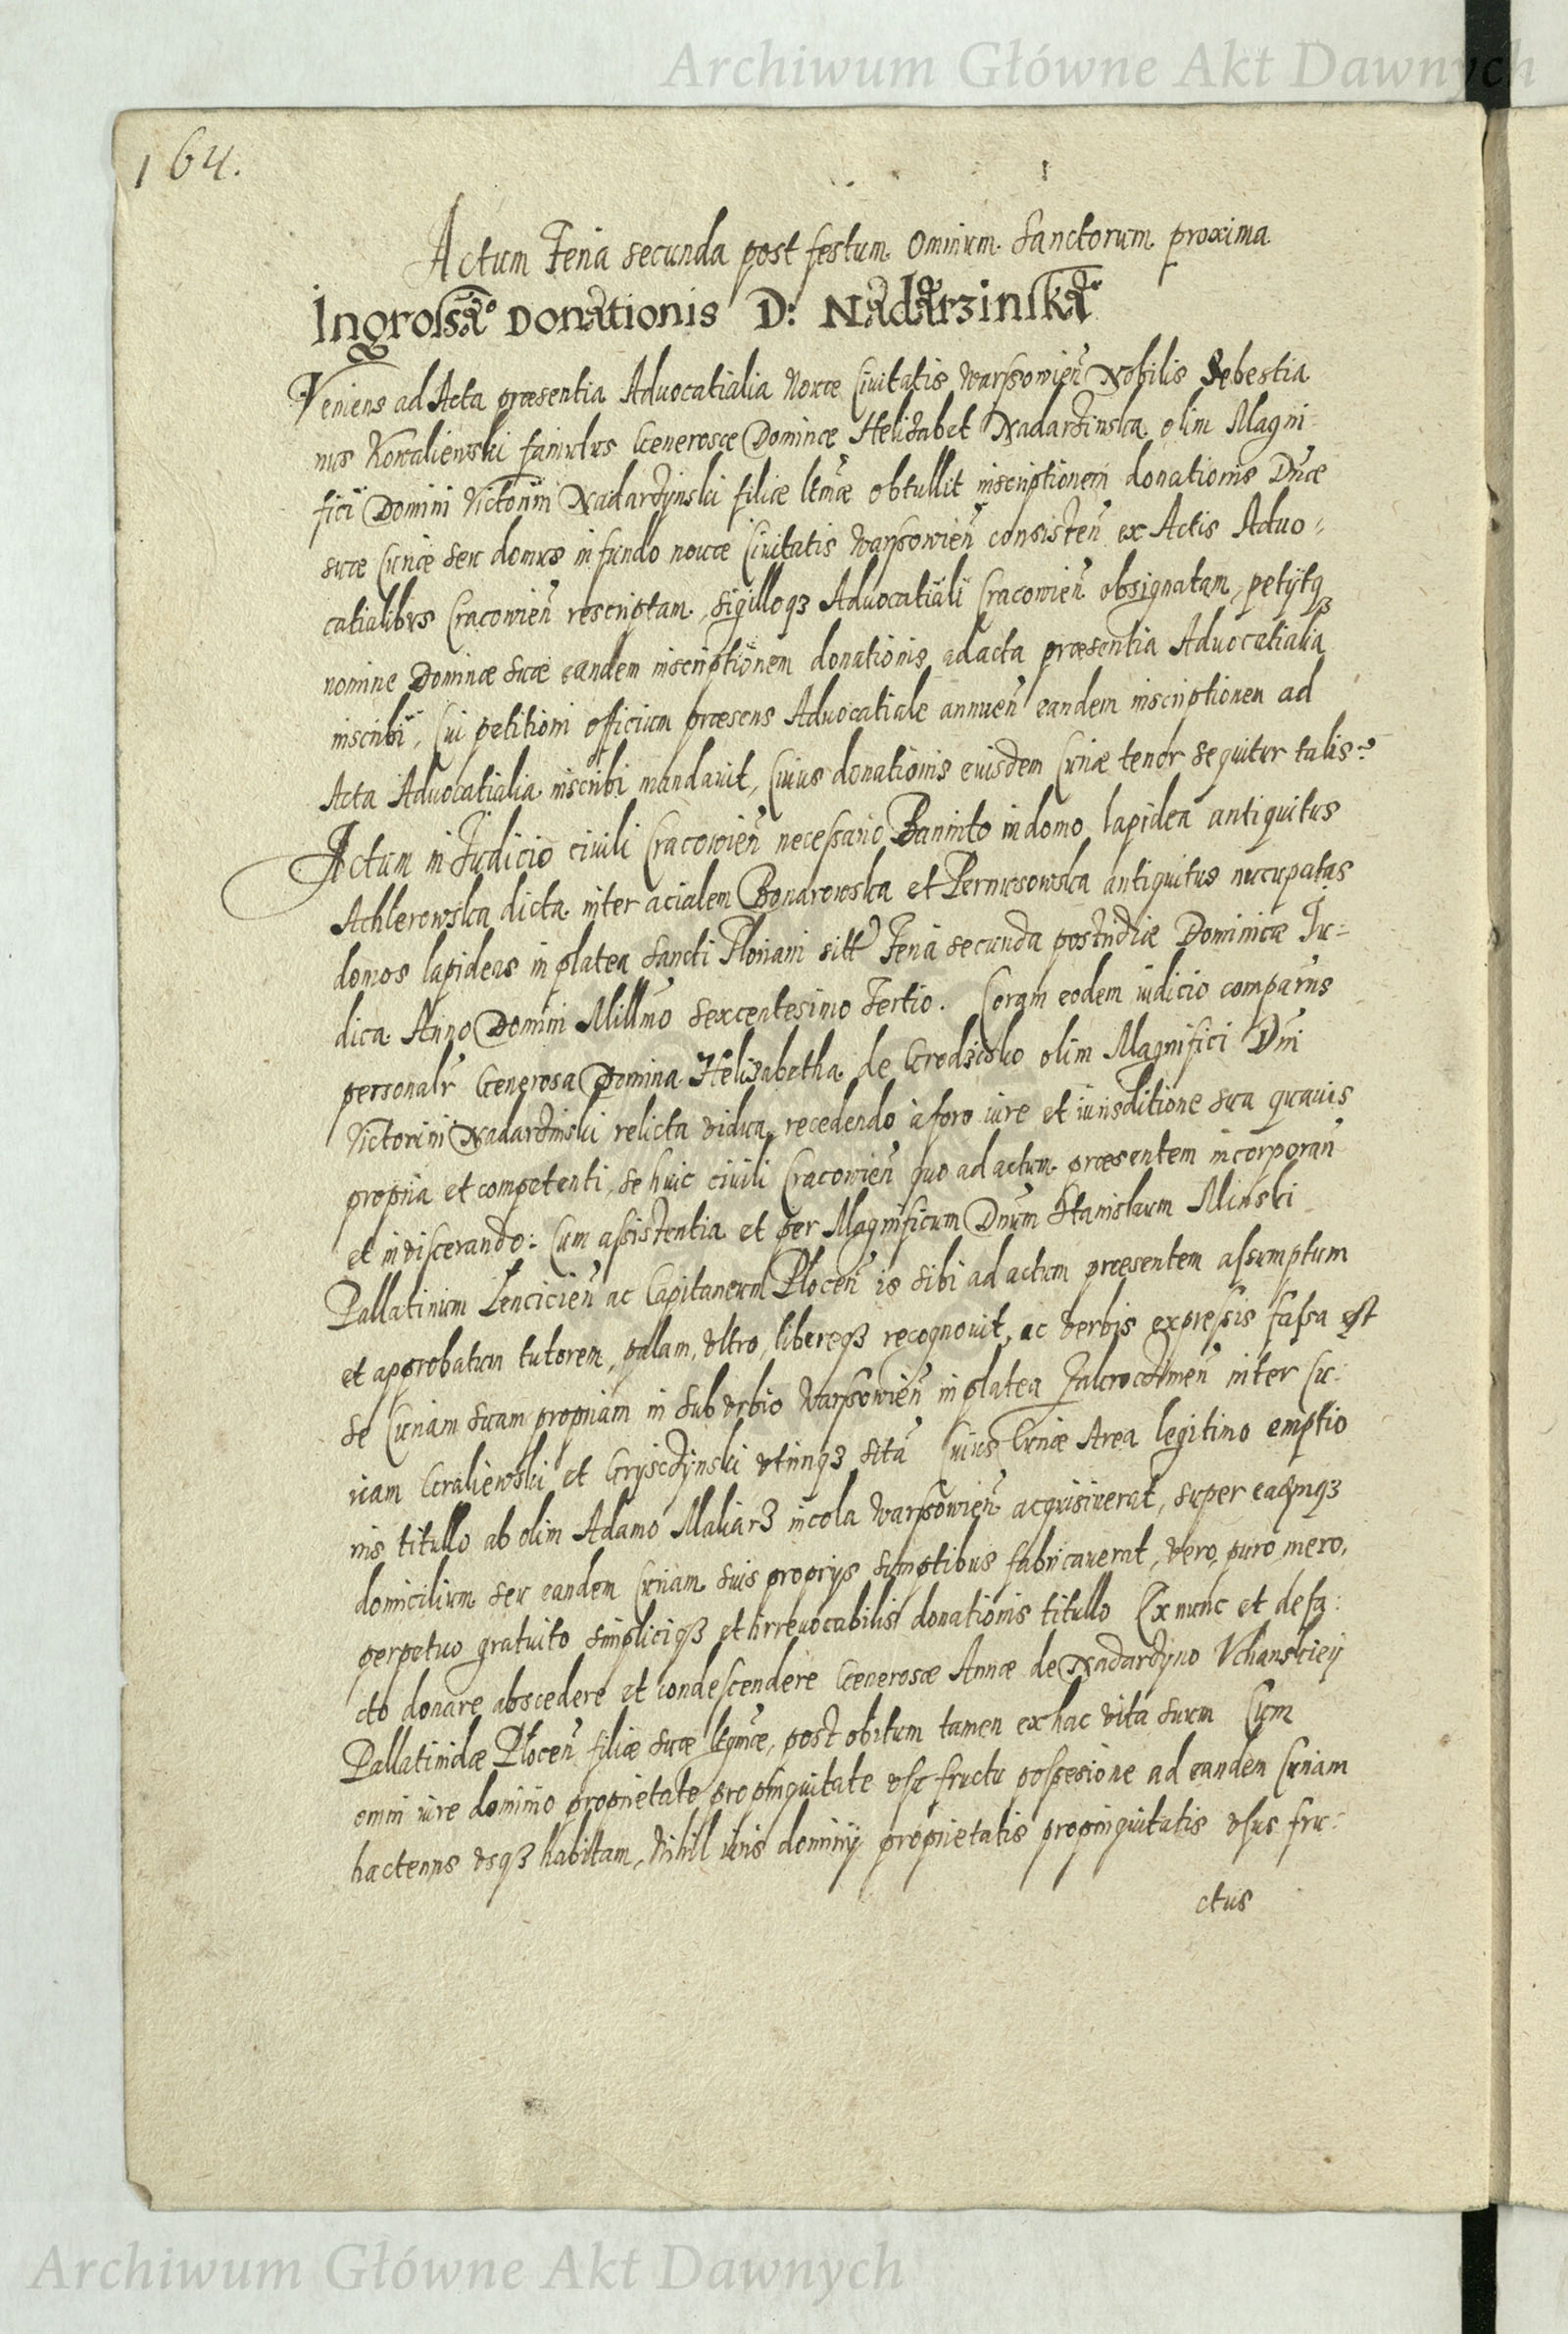 Archiwum Główne Akt Dawnych
164.
Actum Feria secunda post festum Omnium Sanctorum proxima
Ingrossatio Donationis D: Nadarzinska
Veniens ad Acta præsentia Aduocatialia Nouæ Ciuitatis Warssouien Nobilis Sebestia
nus Kowaliewski famulus Generosæ Dominæ Helizabet Nadarzinska olim Magni
fici Domini Victorini Nadarzynski filiæ ltmæ obtullit inscriptionem donationis Dnæ
suæ Curiæ seu domus in fundo nouæ Ciuitatis Warssouien consisten ex Actis Aduo
catialibus Cracouien rescriptam, sigilloqз Aduocatiali Cracouien obsignatam, petijtqз
nomine Dominæ suæ eandem inscriptionem donationis ad acta præsentia Aduocatialia
inscribi, Cui petitioni officium præsens Aduocatiale annuen eandem inscriptionem ad
Acta Aduocatialia inscribi mandauit, Cuius donationis euisdem Curiæ tenor sequitur talis
Actum in Judicio ciuili Cracouien necessario Bannito in domo lapidea antiquitus
Achlerowska dicta inter acialem Bonarowska et Pernusowska antiquitus nucupatas
domos lapideas in platea Sancti Floriani sitt Feria secunda postridiæ Dominicæ Ju=
dica Anno Domini Millmo Sexcentesimo Tertio. Coram eodem iudicio comparens
personalr Generosa Domina Helizabetha de Grodzisko olim Magnifici Dni
Victorini Nadarzinski relicta vidua, recedendo à foro iure et iurisditione sua quauis
propria et competenti, se huic ciuili Cracouien quo ad actum præsentem incorporan
et inviscerando: Cum assistentia et per Magnificum Dnum Stanislaum Minski
Pallatinum Lencicien ac Capitaneum Plocen is sibi ad actum præsentem assumptum
et approbatum tutorem, palam, vltro, libereqз recognouit, ac verbis expressis fassa est
se Curiam suam propriam in sub vrbio Warssouien in platea Zakroczimen inter Cu:
riam Goraliewski et Gryszczynski vtrinqз sita Cuius Curiæ Area legitimo emptio
nis titullo ab olim Adamo Maliarз incola Warssouien acquisiuerat, super eaqmqз
domicilium seu eandem Curiam suis proprijs sumptibus fabricauerat, vero, puro, mero,
perpetuo gratuito simpliciqз et irreuocabilis donationis titullo Ex nunc et de fa:
cto donare abscedere et condescendere Generosæ Annæ de Nadarzyno Vchanskiey
Pallatinidæ Plocen filiæ suæ ltmæ, post obitum tamen ex hac vita suum Cum
omni iure dominio proprietate propinquitate vsu fructu possesione ad eandem Curiam
hactenus vsqз habitam, Nihil iuris dominij proprietatis propinquitatis vsus fru:
ctus
Archiwum Główne Akt Dawnych